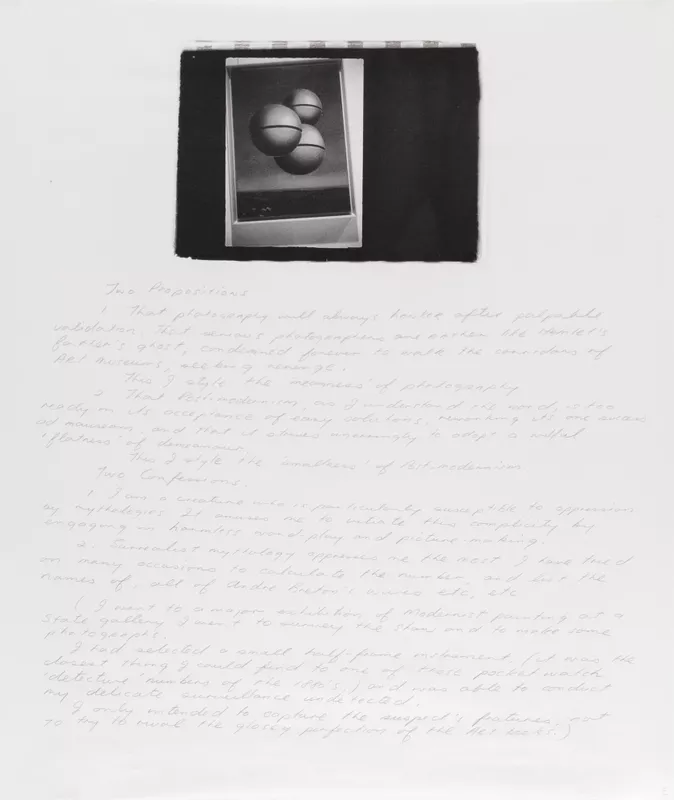 Two Propositions
1. That photography will always hanker after palpable
validation. That serious photographers are rather like Hamlet's
father's ghost, condemned forever to walk the corridors of
Art Museums, seeking revenge.
This I style the 'meanness' of photography
2. That Post-modernism, as I understand the word, is too
ready in its acceptance of easy solutions, reworking its one
ad nauseam, and that it strives unceasingly to adopt a wilful
'flatness' of demeanour.
This I style the 'smallness' of Post-modernism
Two Confessions.
1. I am a creature who is particularly susceptible to oppression
by mythologies. It amuses me to vitiate this complicity by
engaging in harmless word-play and picture-making.
2. Surrealist mythology oppresses me the most. I have tried
on many occasions to calculate the number, and list the
names of, all of André Breton's wives etc, etc
( I went to a major exhibition of Modernist painting at a
State gallery. I went to survey the show and to make some
photographs.
I had selected a small half-frame instrument (it was the
closest thing I could find to one of those pocket-watch
'detective' numbers of the 1880's,) and was able to conduct
my delicate surveillance undetected.
I only intended to capture the suspect's features, not
to try to rival the glossy perfection of the Art books.)